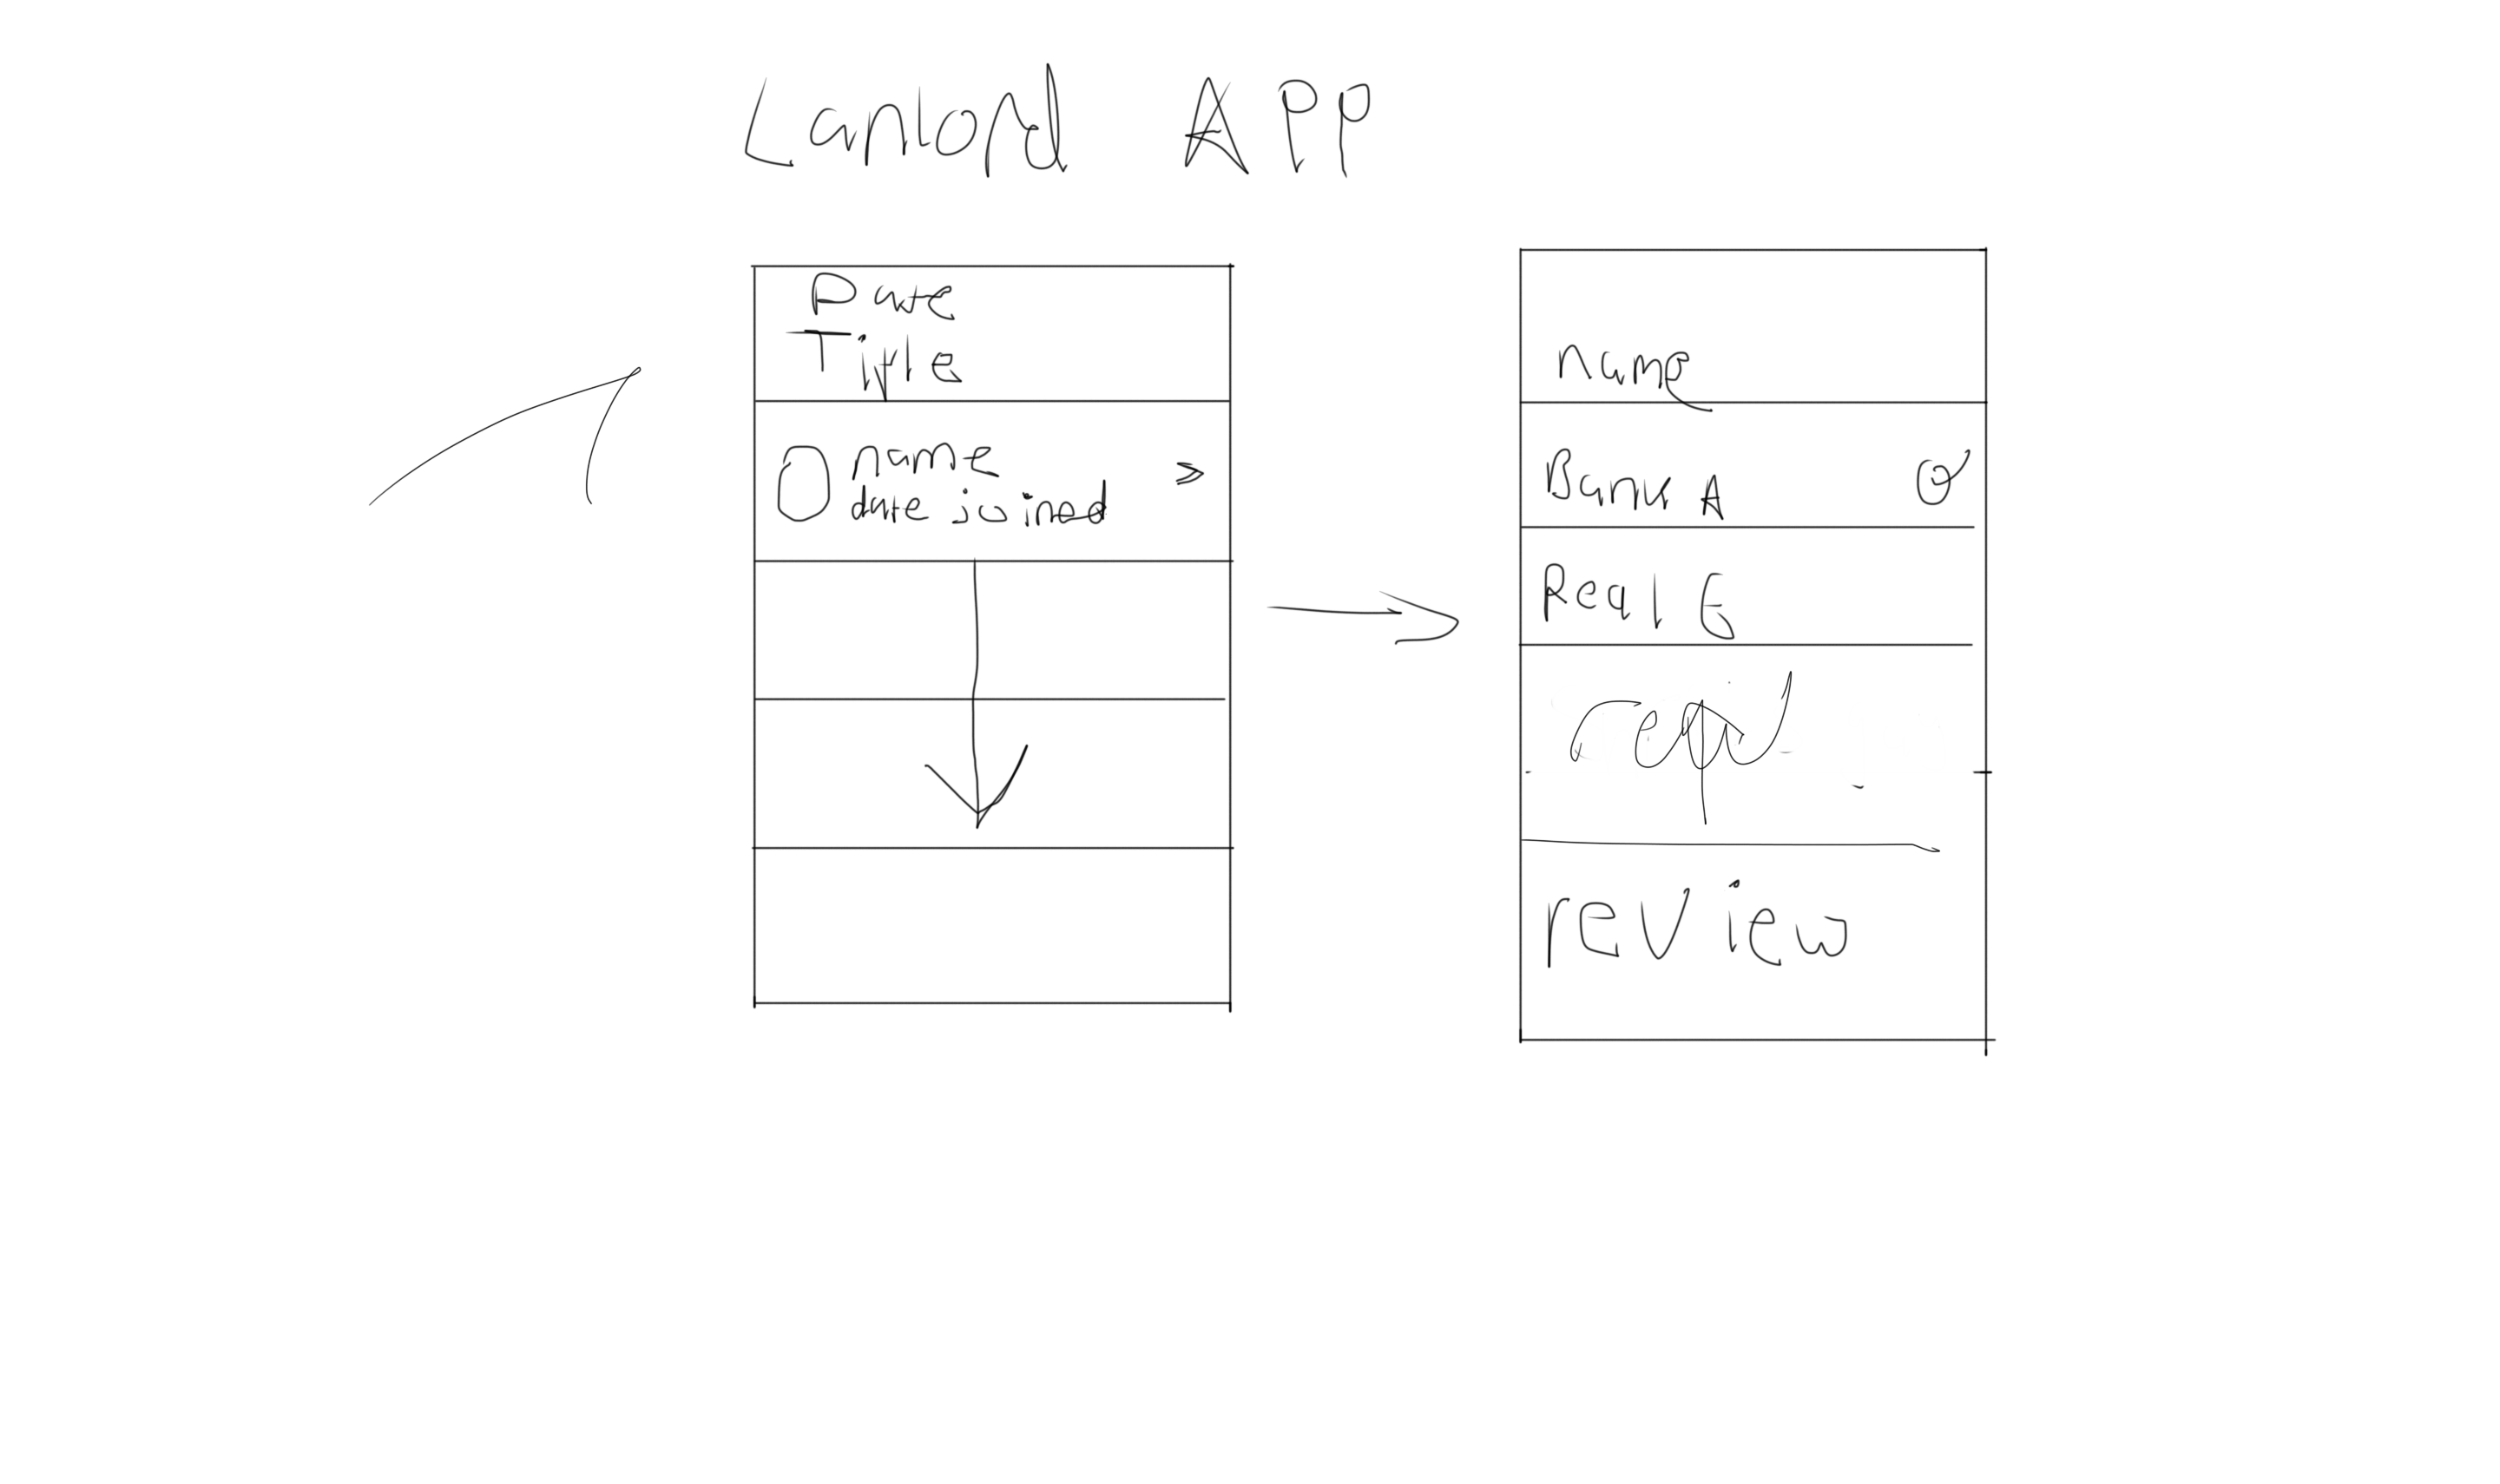 Lanlord APP
Date
Title
name
date joined
>
name
Bank A
Real E
review